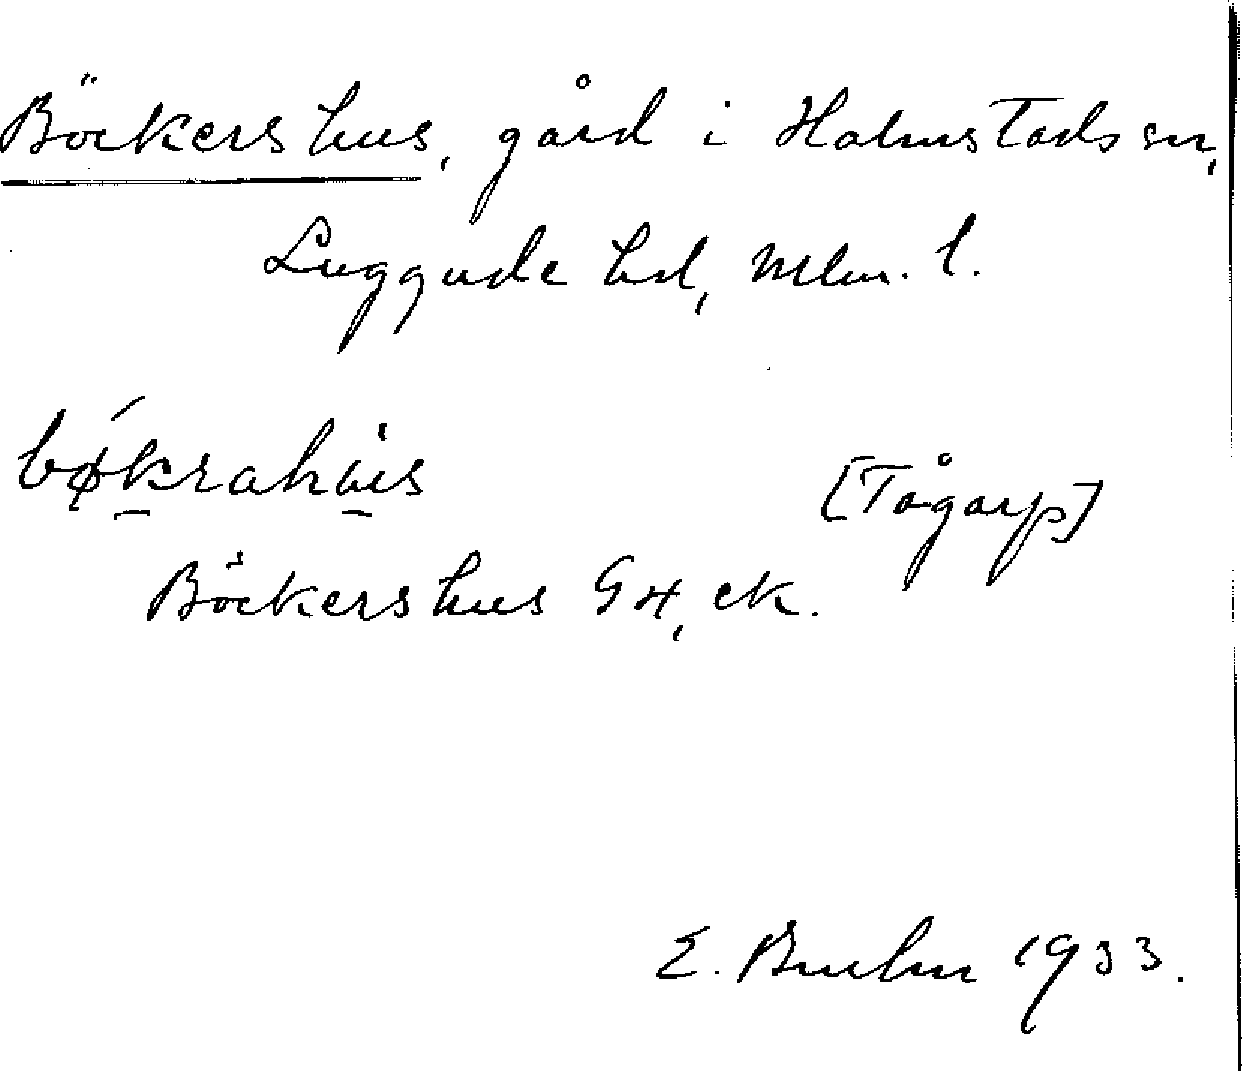 Böckershus, gård i Halmstads sn,
Luggude hd, Mlm. l.
bǿkrahúis
[Tågarp]
Böckershus G4, ek.
E. Bruhn 1933.